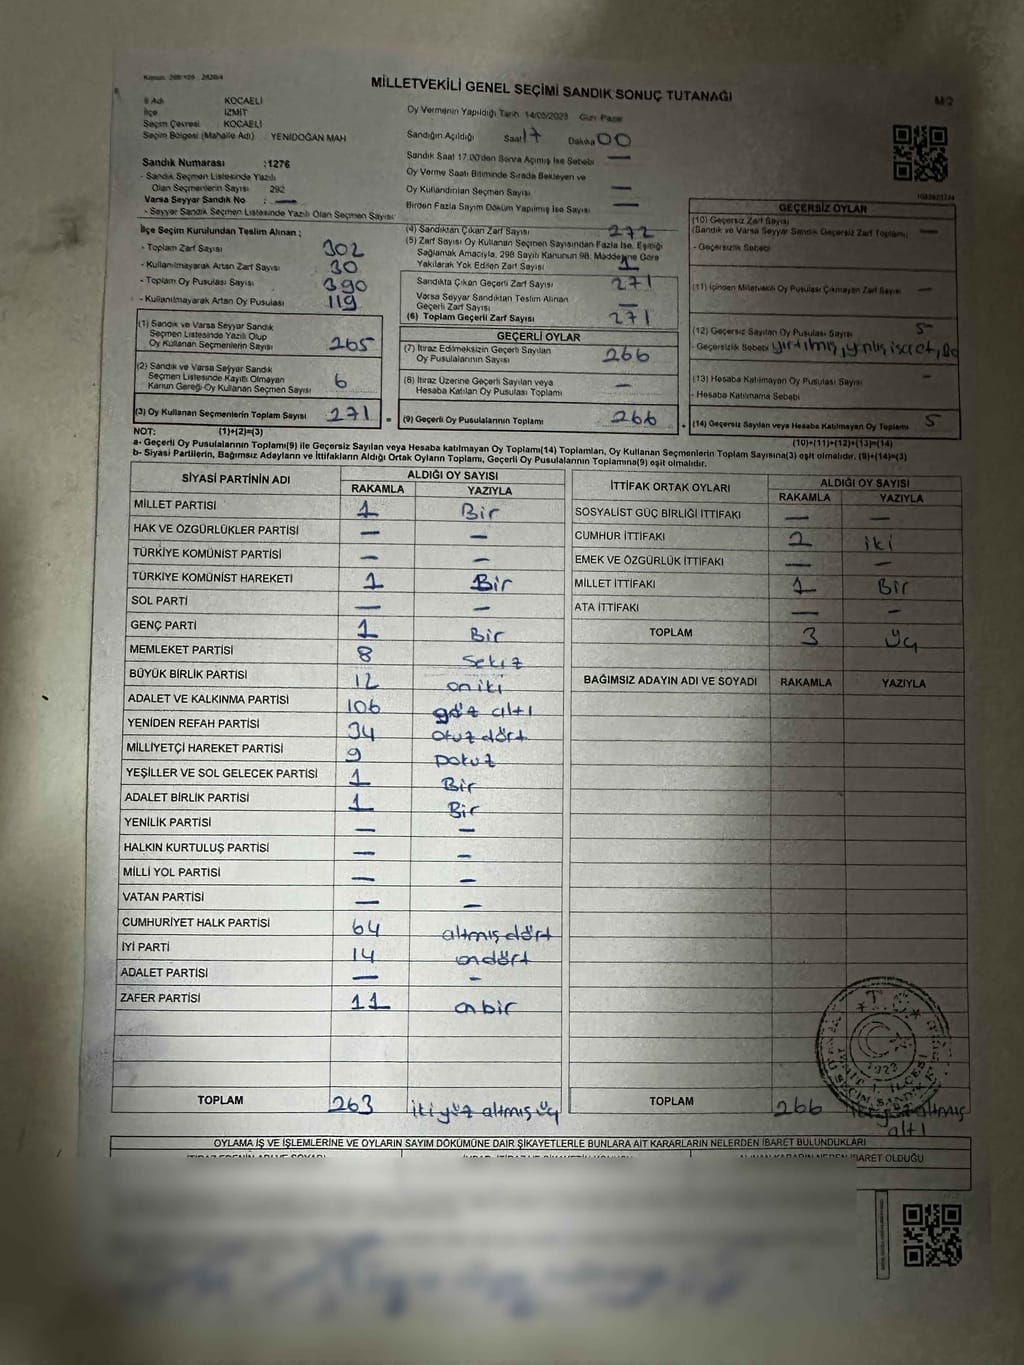 MİLLETVEKİLİ GENEL SEÇİMİ SANDIK SONUÇ TUTANAĞI
İl Adı KOCAELİ
İlçe İZMİT
Seçim Çevresi KOCAELİ
Seçim Bölgesi (Mahalle Adı) YENİDOĞAN MAH
Oy Vermenin Yapıldığı Tarih 14/05/2023 Gün Pazar
Sandığın Açıldığı Saat 17 Dakika 00
Sandık Saat 17.00'den Sonra Açılmış İse Sebebi —
Oy Verme Saati Bitiminde Sırada Bekleyen ve
Oy Kullandırılan Seçmen Sayısı —
Birden Fazla Sayım Döküm Yapılmış İse Sayısı —
Sandık Numarası :1276
- Sandık Seçmen Listesinde Yazılı
Olan Seçmenlerin Sayısı 292
Varsa Seyyar Sandık No : —
- Seyyar Sandık Seçmen Listesinde Yazılı Olan Seçmen Sayısı
İlçe Seçim Kurulundan Teslim Alınan ;
- Toplam Zarf Sayısı 302
- Kullanılmayarak Artan Zarf Sayısı 30
- Toplam Oy Pusulası Sayısı 390
- Kullanılmayarak Artan Oy Pusulası 119
(1) Sandık ve Varsa Seyyar Sandık
Seçmen Listesinde Yazılı Olup
Oy Kullanan Seçmenlerin Sayısı 265
(2) Sandık ve Varsa Seyyar Sandık
Seçmen Listesinde Kayıtlı Olmayan
Kanun Gereği Oy Kullanan Seçmen Sayısı 6
(3) Oy Kullanan Seçmenlerin Toplam Sayısı 271
(4) Sandıktan Çıkan Zarf Sayısı 272
(5) Zarf Sayısı Oy Kullanan Seçmen Sayısından Fazla İse, Eşitliği
Sağlamak Amacıyla, 298 Sayılı Kanunun 98. Maddesine Göre
Yakılarak Yok Edilen Zarf Sayısı 1
Sandıkta Çıkan Geçerli Zarf Sayısı 271
Varsa Seyyar Sandıktan Teslim Alınan
Geçerli Zarf Sayısı —
(6) Toplam Geçerli Zarf Sayısı 271
GEÇERLİ OYLAR
(7) İtiraz Edilmeksizin Geçerli Sayılan
Oy Pusulalarının Sayısı 266
(8) İtiraz Üzerine Geçerli Sayılan veya
Hesaba Katılan Oy Pusulası Toplamı —
(9) Geçerli Oy Pusulalarının Toplamı 266
GEÇERSİZ OYLAR
(10) Geçersiz Zarf Sayısı
(Sandık ve Varsa Seyyar Sandık Geçersiz Zarf Toplamı) —
- Geçersizlik Sebebi
(11) İçinden Milletvekili Oy Pusulası Çıkmayan Zarf Sayısı —
(12) Geçersiz Sayılan Oy Pusulası Sayısı 5
- Geçersizlik Sebebi yırtılmış, yanlış işaret,
(13) Hesaba Katılmayan Oy Pusulası Sayısı —
- Hesaba Katılmama Sebebi
(14) Geçersiz Sayılan veya Hesaba Katılmayan Oy Toplamı 5
NOT: (1)+(2)=(3)
(10)+(11)+(12)+(13)=(14)
a- Geçerli Oy Pusulalarının Toplamı(9) ile Geçersiz Sayılan veya Hesaba katılmayan Oy Toplamı(14) Toplamları, Oy Kullanan Seçmenlerin Toplam Sayısına(3) eşit olmalıdır. (9)+(14)=(3)
b- Siyasi Partilerin, Bağımsız Adayların ve İttifakların Aldığı Ortak Oyların Toplamı, Geçerli Oy Pusulalarının Toplamına(9) eşit olmalıdır.
SİYASİ PARTİNİN ADI ALDIĞI OY SAYISI
RAKAMLA YAZIYLA
MİLLET PARTİSİ 1 Bir
HAK VE ÖZGÜRLÜKLER PARTİSİ — —
TÜRKİYE KOMÜNİST PARTİSİ — —
TÜRKİYE KOMÜNİST HAREKETİ 1 Bir
SOL PARTİ — —
GENÇ PARTİ 1 Bir
MEMLEKET PARTİSİ 8 Sekiz
BÜYÜK BİRLİK PARTİSİ 12 oniki
ADALET VE KALKINMA PARTİSİ 106 yüz altı
YENİDEN REFAH PARTİSİ 34 otuz dört
MİLLİYETÇİ HAREKET PARTİSİ 9 Dokuz
YEŞİLLER VE SOL GELECEK PARTİSİ 1 Bir
ADALET BİRLİK PARTİSİ 1 Bir
YENİLİK PARTİSİ — —
HALKIN KURTULUŞ PARTİSİ — —
MİLLİ YOL PARTİSİ — —
VATAN PARTİSİ — —
CUMHURİYET HALK PARTİSİ 64 altmış dört
İYİ PARTİ 14 ondört
ADALET PARTİSİ — —
ZAFER PARTİSİ 11 onbir
TOPLAM 263 iki yüz altmış üç
İTTİFAK ORTAK OYLARI ALDIĞI OY SAYISI
RAKAMLA YAZIYLA
SOSYALİST GÜÇ BİRLİĞİ İTTİFAKI — —
CUMHUR İTTİFAKI 2 iki
EMEK VE ÖZGÜRLÜK İTTİFAKI — —
MİLLET İTTİFAKI 1 Bir
ATA İTTİFAKI — —
TOPLAM 3 üç
BAĞIMSIZ ADAYIN ADI VE SOYADI RAKAMLA YAZIYLA
T.C.
1923
TOPLAM 266 altmış
altı
OYLAMA İŞ VE İŞLEMLERİNE VE OYLARIN SAYIM DÖKÜMÜNE DAİR ŞİKAYETLERLE BUNLARA AİT KARARLARIN NELERDEN İBARET BULUNDUKLARI
İBARET OLDUĞU